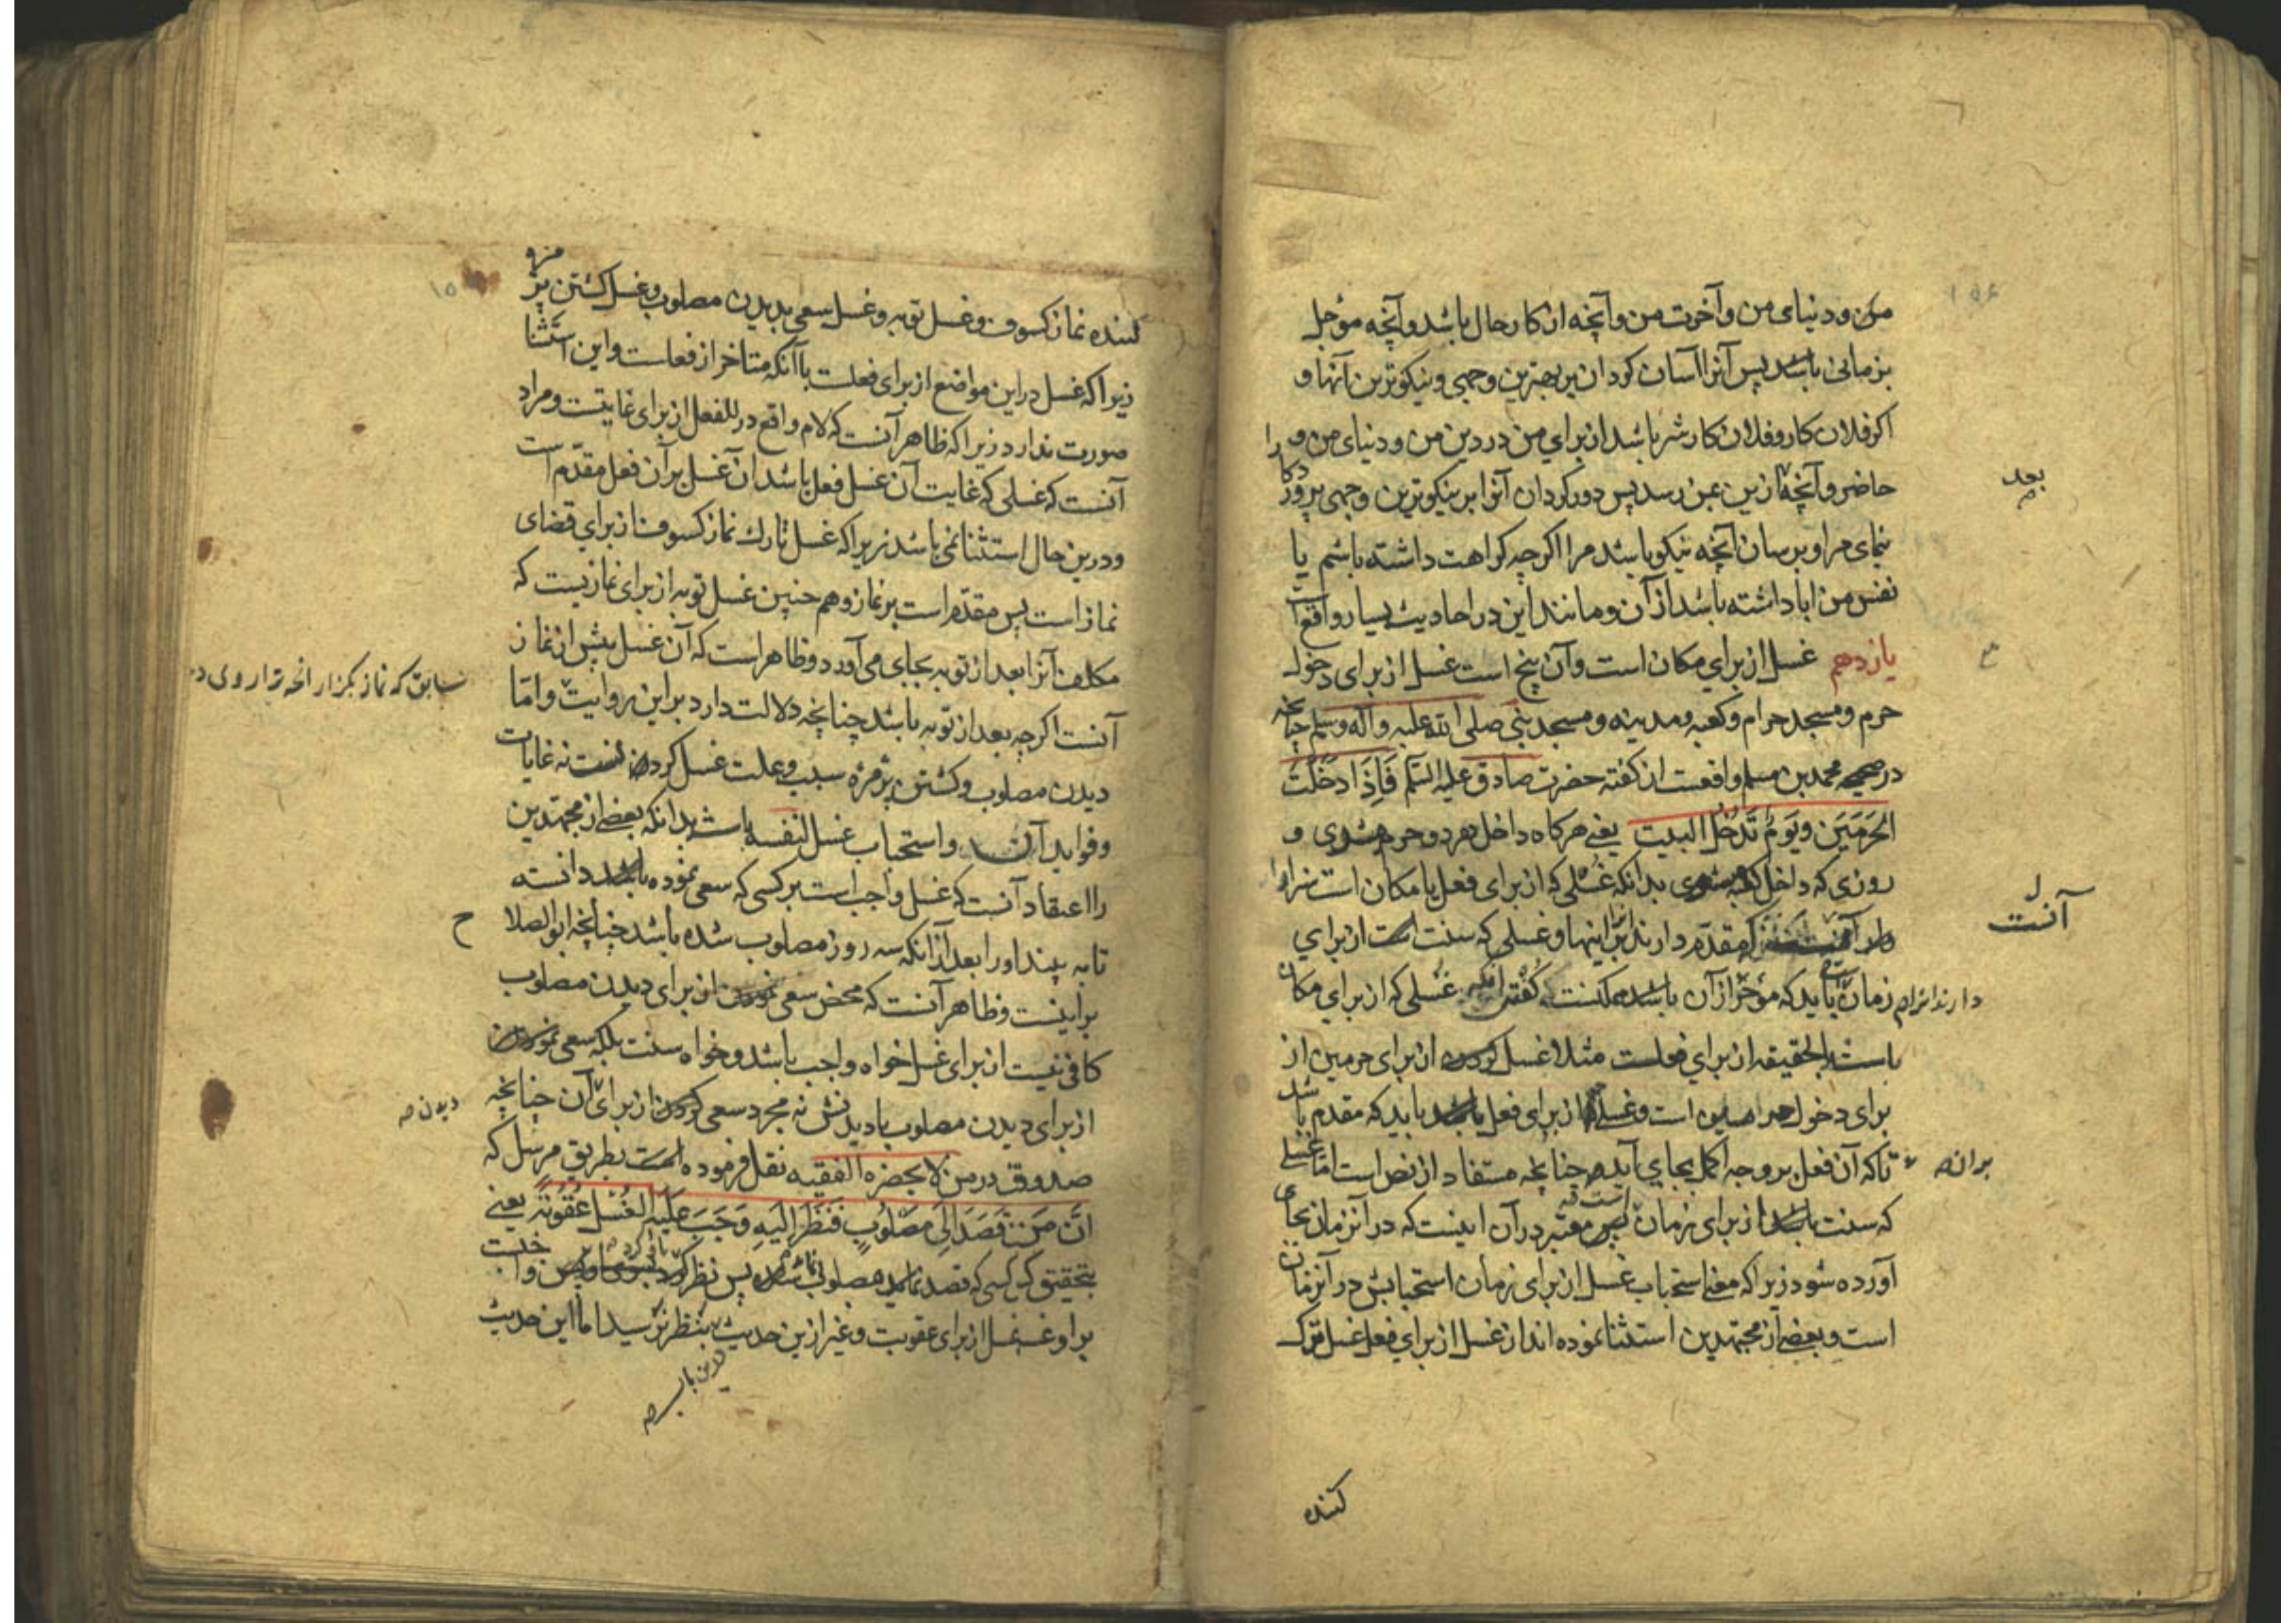 من و دنیای من و آخرت من و آنچه از کار حال باشد و آنچه مؤجل
بزمانی باشد پس آنرا آسان کردان بر بهترین وجهی و نیکوترین آنها و
اکر فلان کار و فلان کار شر باشد از برای من در دین من و دنیای من و
حاضر و آنچه ازین بمن رسد پس دور کردان آنرا بر نیکوترین وجهی پروردکارا
بعد
بنمای مرا و برسان آنچه نیکو باشد مرا اکرچه کراهت داشته باشم یا
نفس من ابا داشته باشد از آن و مانند این در احادیث بسیار واقع است
یازدهم غسل از برای مکان است و آن پنج است غسل از برای دخول
حرم و مسجد حرام و کعبه و مدینه و مسجد نبی صلی الله علیه و آله و سلم چنانچه
در صحیحه محمد بن مسلم واقعست از کفته حضرت صادق علیه السلم فَاِذَا دَخَلْتَ
الحَرَمَیْنِ وَیَوْمَ تَدْخُلُ البیت یعنی هرکاه داخل هر دو حرم شوی و
روزی که داخل کعبه شوی بدانکه غسلی که از برای فعل یا مکان است سزاوار
آنست
که مقدم دارند بر اینها و غسلی که سنت است از برای
دارند انرا زمان باید که مؤخر از آن باشد غسلی که از برای مکان
باشد بالحقیقه از برای فعلست مثلا غسل کردن از برای حرمین از
برای دخول حرمین است و غسلی از برای فعل باید که مقدم باشد
بران تا که آن فعل بر وجه اکمل بجای آید چنانچه مستفاد از نص است اما غسلی
که سنت باشد از برای زمان معتبر در آن اینست که در آنزمان بجای
آورده شود زیراکه معنی استحباب غسل از برای زمان استحبابش در آنزمان
است و بعضی از مجتهدین استثنا نموده اند از غسل از برای فعل غسل ترک
کننده
کننده نماز کسوف و غسل توبه و غسل سعی بدیدن مصلوب و غسل کشتن پژمژه و
زیراکه غسل در این مواضع از برای فعلست با آنکه متاخر از فعلست و این استثنا
صورت ندارد زیراکه ظاهر آنست که لام واقع در للفعل از برای غایتست و مراد
آنست که غسلی که غایت آن غسل فعل باشد آن غسل بر آن فعل مقدم است
و درین حال استثنا نمی باشد زیراکه غسل تارک نماز کسوف از برای قضای
نماز است پس مقدم است بر نماز و هم چنین غسل توبه از برای نماز یست که
مکلف آنرا بعد از توبه بجای می آورد و ظاهر است که آن غسل پیش از نماز
آنست اکرچه بعد از توبه باشد چنانچه دلالت دارد بر این روایت و اما
سابق که نماز بکزار
دیدن مصلوب و کشتن پژمژه سبب و علت غسل کردن است نه غایات
و فواید آن و استحباب غسل لنفسه باشد بدانکه بعضی از مجتهدین
را اعتقاد آنست که غسل واجب است بر کسی که سعی نموده باشد دانسته
تا به بیند او را بعد از آنکه سه روز مصلوب شده باشد چنانچه ابو الصلاح
بر اینست و ظاهر آنست که محض سعی نمودن از برای دیدن مصلوب
کافی نیست از برای غسل خواه واجب باشد و خواه سنت بلکه سعی نمودن
از برای دیدن مصلوب با دیدنش نه مجرد سعی کردن از برای آن چنانچه
دیدن
صدوق در من لا یحضره الفقیه نقل فرموده است بطریق مرسل که
اِنَّ مَنْ قَصَدَ اِلَی مَصْلُوبٍ فَنَظَرَ اِلَیْهِ وَجَبَ عَلَیْهِ الغُسْل عُقُوبَةً یعنی
بتحقیق که کسی که قصد نماید مصلوب پس نظر کرد
بر او غسل از برای عقوبت و غیر ازین حدیث بنظر نرسید اما این حدیث